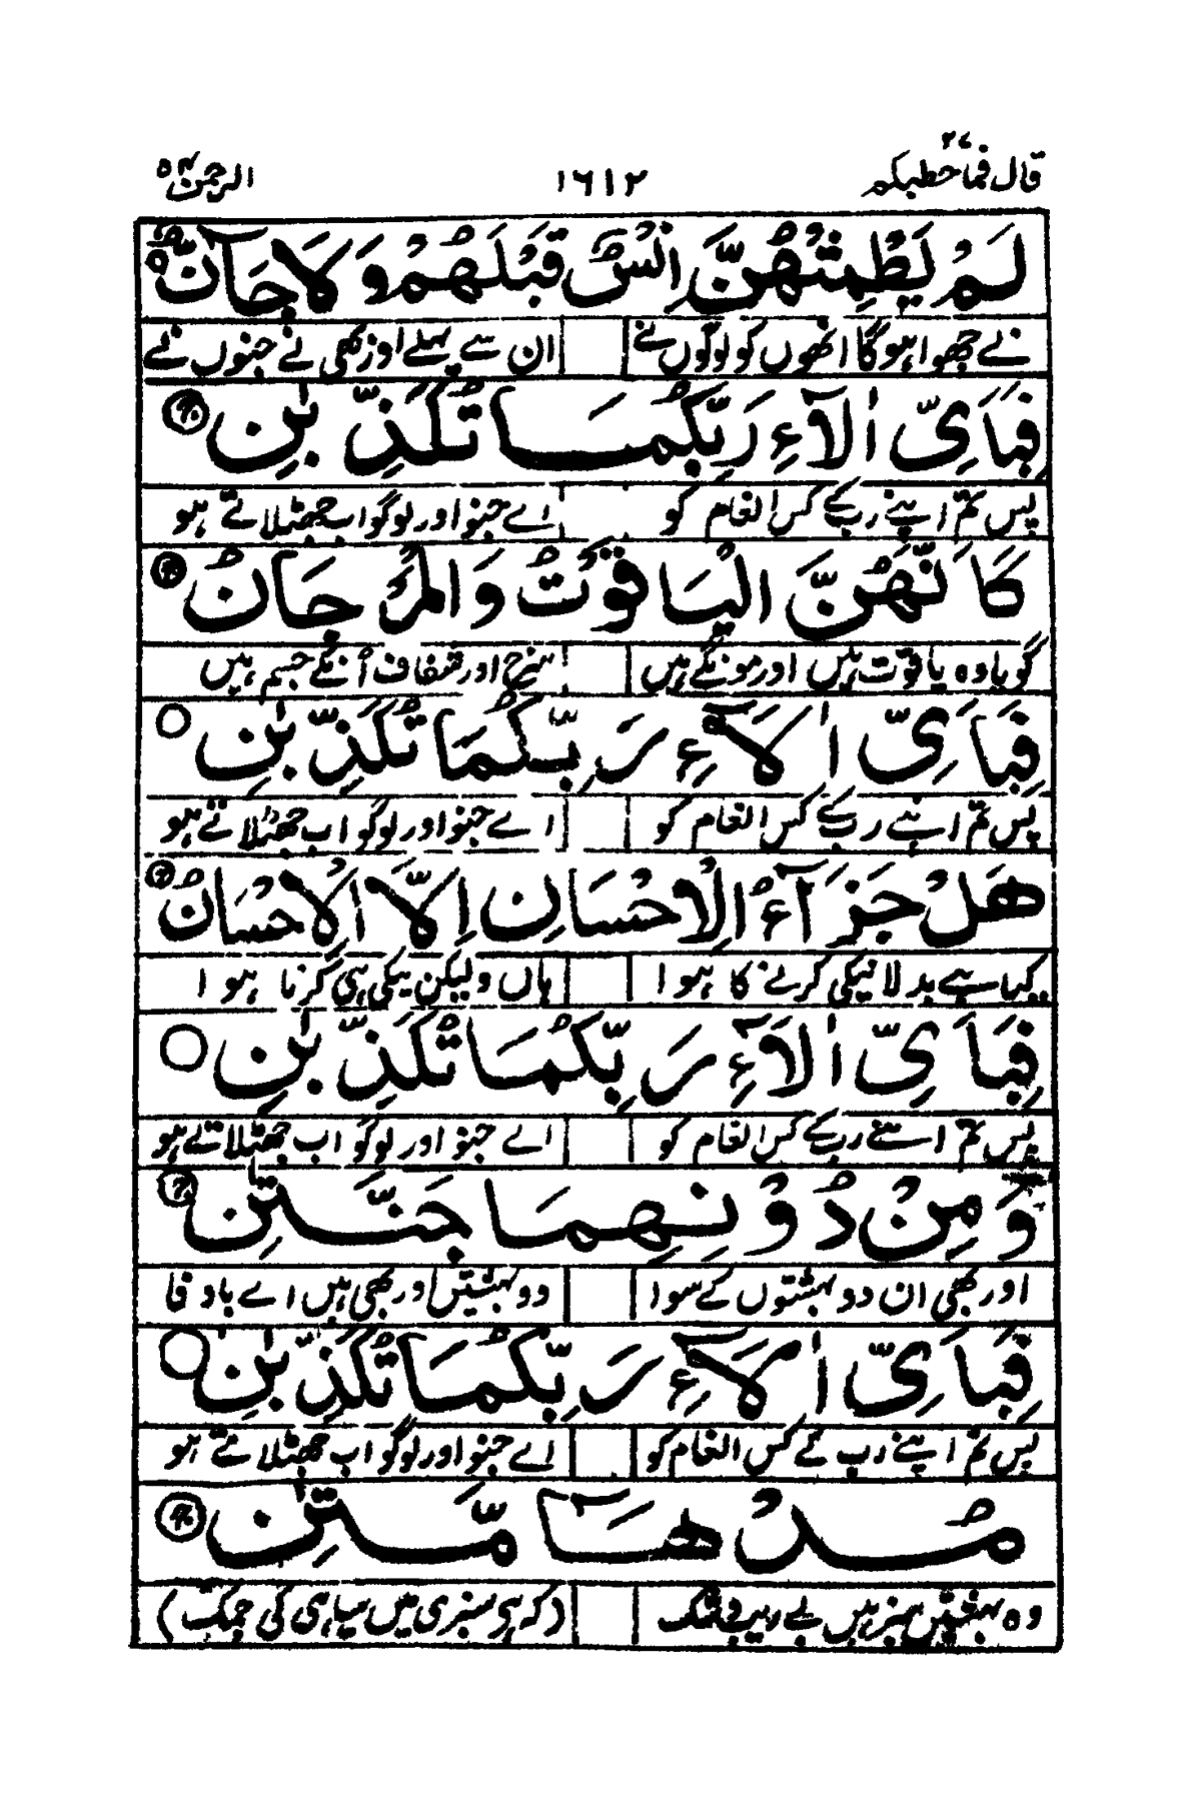 قال فما خطبکم ۲۷ ۱۶۱۲ الرحمٰن ۵۵
لَمۡ یَطۡمِثۡهُنَّ اِنۡسٌ قَبۡلَهُمۡ وَلَا جَآنٌّ
نے چھوا ہوگا انھوں کو لوگوں نے ان سے پہلے اور بھی نے جنوں نے
فَبِاَیِّ اٰلَآءِ رَبِّکُمَا تُکَذِّبٰنِ
پس تم اپنے رب کے کس انعام کو اے جنو اور لوگو اب جھٹلاتے ہو
کَاَنَّهُنَّ الۡیَاقُوۡتُ وَالۡمَرۡجَانُ
گویا وہ یاقوت ہیں اور مونگے ہیں سرخ اور شفاف انکے جسم ہیں
فَبِاَیِّ اٰلَآءِ رَبِّکُمَا تُکَذِّبٰنِ
پس تم اپنے رب کے کس انعام کو اے جنو اور لوگو اب جھٹلاتے ہو
هَلۡ جَزَآءُ الۡاِحۡسَانِ اِلَّا الۡاِحۡسَانُ
کیا ہے بدلا نیکی کرنے کا ہوا ہاں ولیکن نیکی ہی کرنا ہوا
فَبِاَیِّ اٰلَآءِ رَبِّکُمَا تُکَذِّبٰنِ
پس تم اپنے رب کے کس انعام کو اے جنو اور لوگو اب جھٹلاتے ہو
وَمِنۡ دُوۡنِهِمَا جَنَّتٰنِ
اور بھی ان دو بہشتوں کے سوا دو بہشتیں اور بھی ہیں اے باوفا
فَبِاَیِّ اٰلَآءِ رَبِّکُمَا تُکَذِّبٰنِ
پس تم اپنے رب کے کس انعام کو اے جنو اور لوگو اب جھٹلاتے ہو
مُدۡهَآمَّتٰنِ
وہ بہشتیں سبز ہیں بے ریب و شک (کہ ہے سبزی میں سیاہی کی چمک)